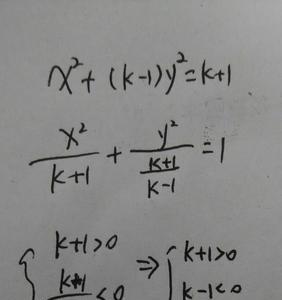 x²+(k-1)y²=k+1
x²/(k+1) + y²/((k+1)/(k-1)) =1
{ k+1>0 ⇒ { k+1>0
k+1 <0 k-1<0